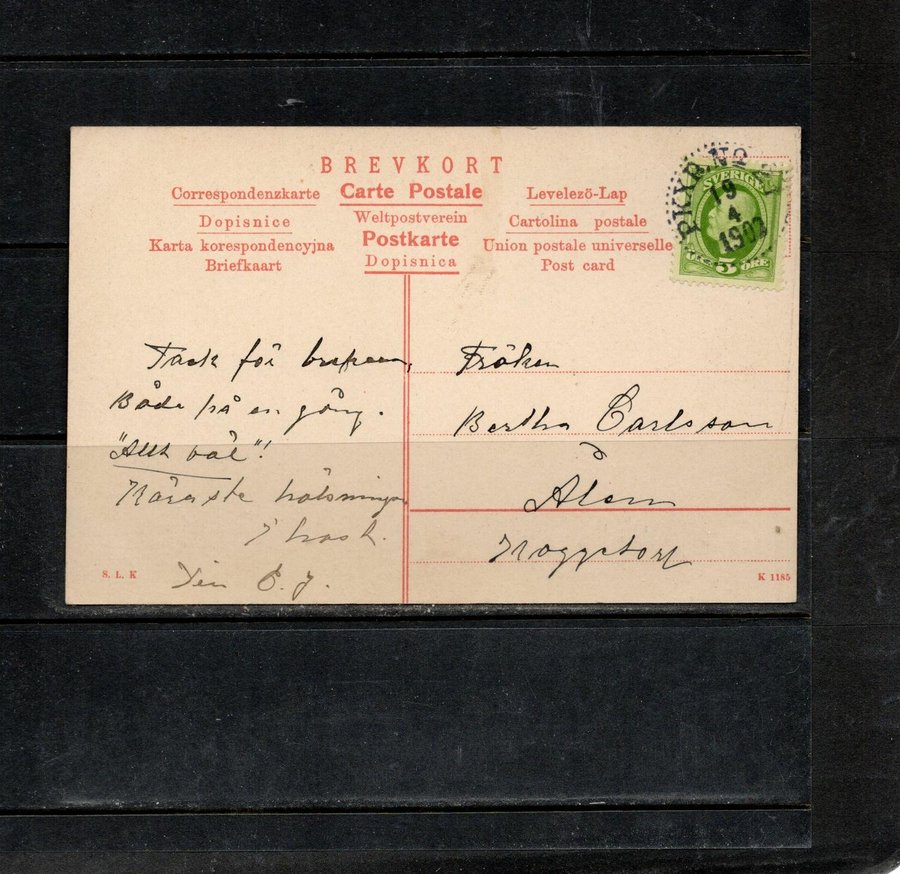 BREVKORT
Correspondenzkarte Carte Postale Levelezõ-Lap
Dopisnice Weltpostverein Cartolina postale
Karta korespondencyjna Postkarte Union postale universelle
Briefkaart Dopisnica Post card
PKXB.N2
19
4
1902
SVERIGE
5 ÖRE
Tack för brefven,
Både på en gång.
"Allt väl"!
Käraste hälsningar
I hast.
Din
Fröken
Bertha Carlsson
Ålem
S. L. K
K 1185